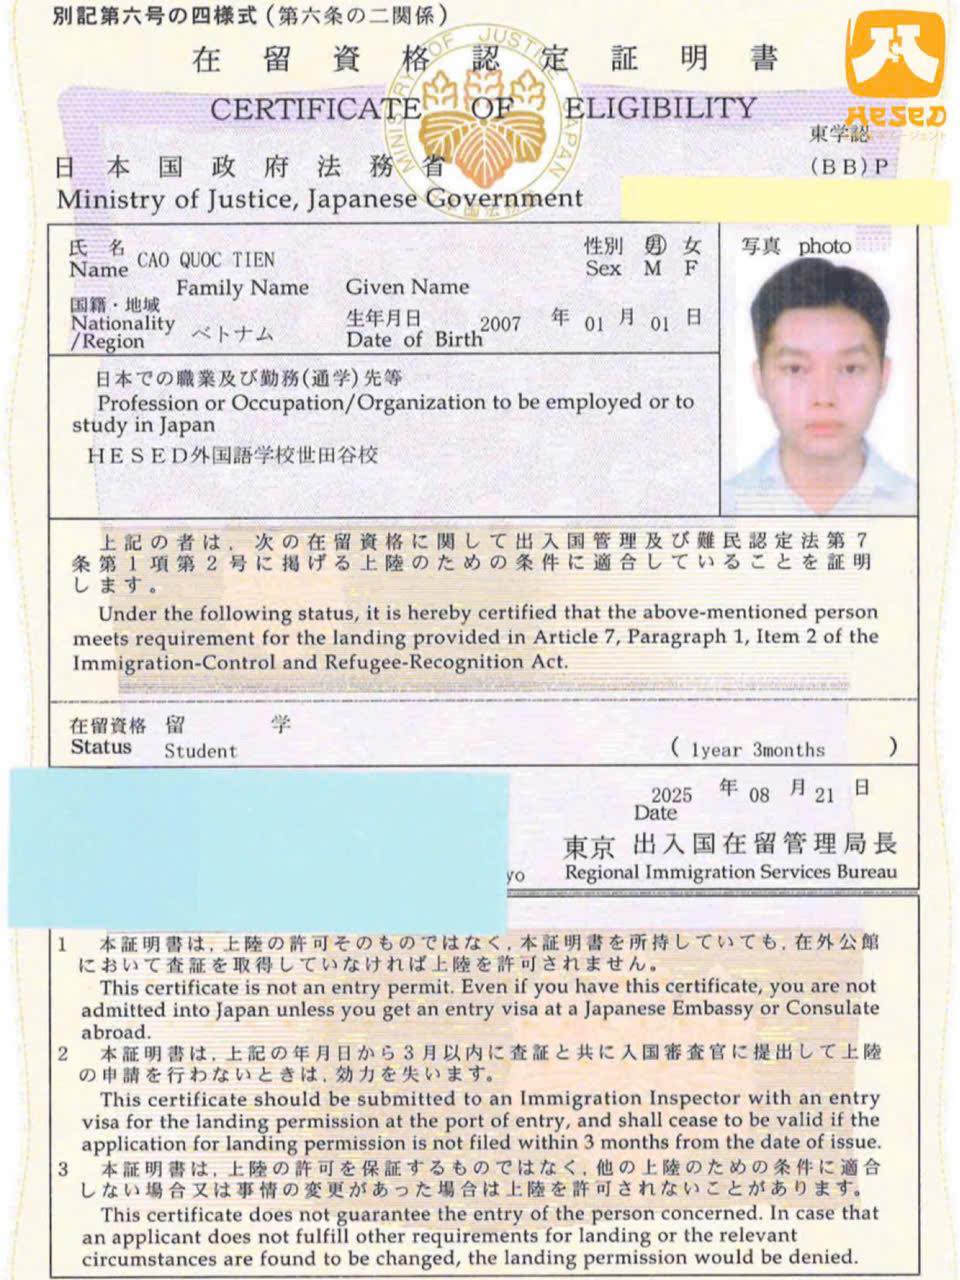 別記第六号の四様式(第六条の二関係)
在留資格認定証明書
CERTIFICATE OF ELIGIBILITY
MINISTRY OF JUSTICE JAPAN
HESED
東学認
(BB)P
日本国政府法務省
Ministry of Justice, Japanese Government
氏名 CAO QUOC TIEN 性別 男 女
Name Family Name Given Name Sex M F
写真 photo
国籍・地域 ベトナム 生年月日 2007 年 01 月 01 日
Nationality/Region Date of Birth
日本での職業及び勤務(通学)先等
Profession or Occupation/Organization to be employed or to
study in Japan
HESED外国語学校世田谷校
上記の者は,次の在留資格に関して出入国管理及び難民認定法第7
条第1項第2号に掲げる上陸のための条件に適合していることを証明
します。
Under the following status, it is hereby certified that the above-mentioned person
meets requirement for the landing provided in Article 7, Paragraph 1, Item 2 of the
Immigration-Control and Refugee-Recognition Act.
在留資格 留学
Status Student ( 1year 3months )
2025 年 08 月 21 日
Date
東京 出入国在留管理局長
yo Regional Immigration Services Bureau
1 本証明書は,上陸の許可そのものではなく,本証明書を所持していても,在外公館
において査証を取得していなければ上陸を許可されません。
This certificate is not an entry permit. Even if you have this certificate, you are not
admitted into Japan unless you get an entry visa at a Japanese Embassy or Consulate
abroad.
2 本証明書は,上記の年月日から3月以内に査証と共に入国審査官に提出して上陸
の申請を行わないときは,効力を失います。
This certificate should be submitted to an Immigration Inspector with an entry
visa for the landing permission at the port of entry, and shall cease to be valid if the
application for landing permission is not filed within 3 months from the date of issue.
3 本証明書は,上陸の許可を保証するものではなく,他の上陸のための条件に適合
しない場合又は事情の変更があった場合は上陸を許可されないことがあります。
This certificate does not guarantee the entry of the person concerned. In case that
an applicant does not fulfill other requirements for landing or the relevant
circumstances are found to be changed, the landing permission would be denied.